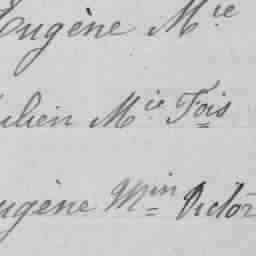 Eugène Mie
ulien Mie Fois
ugène Min Victor